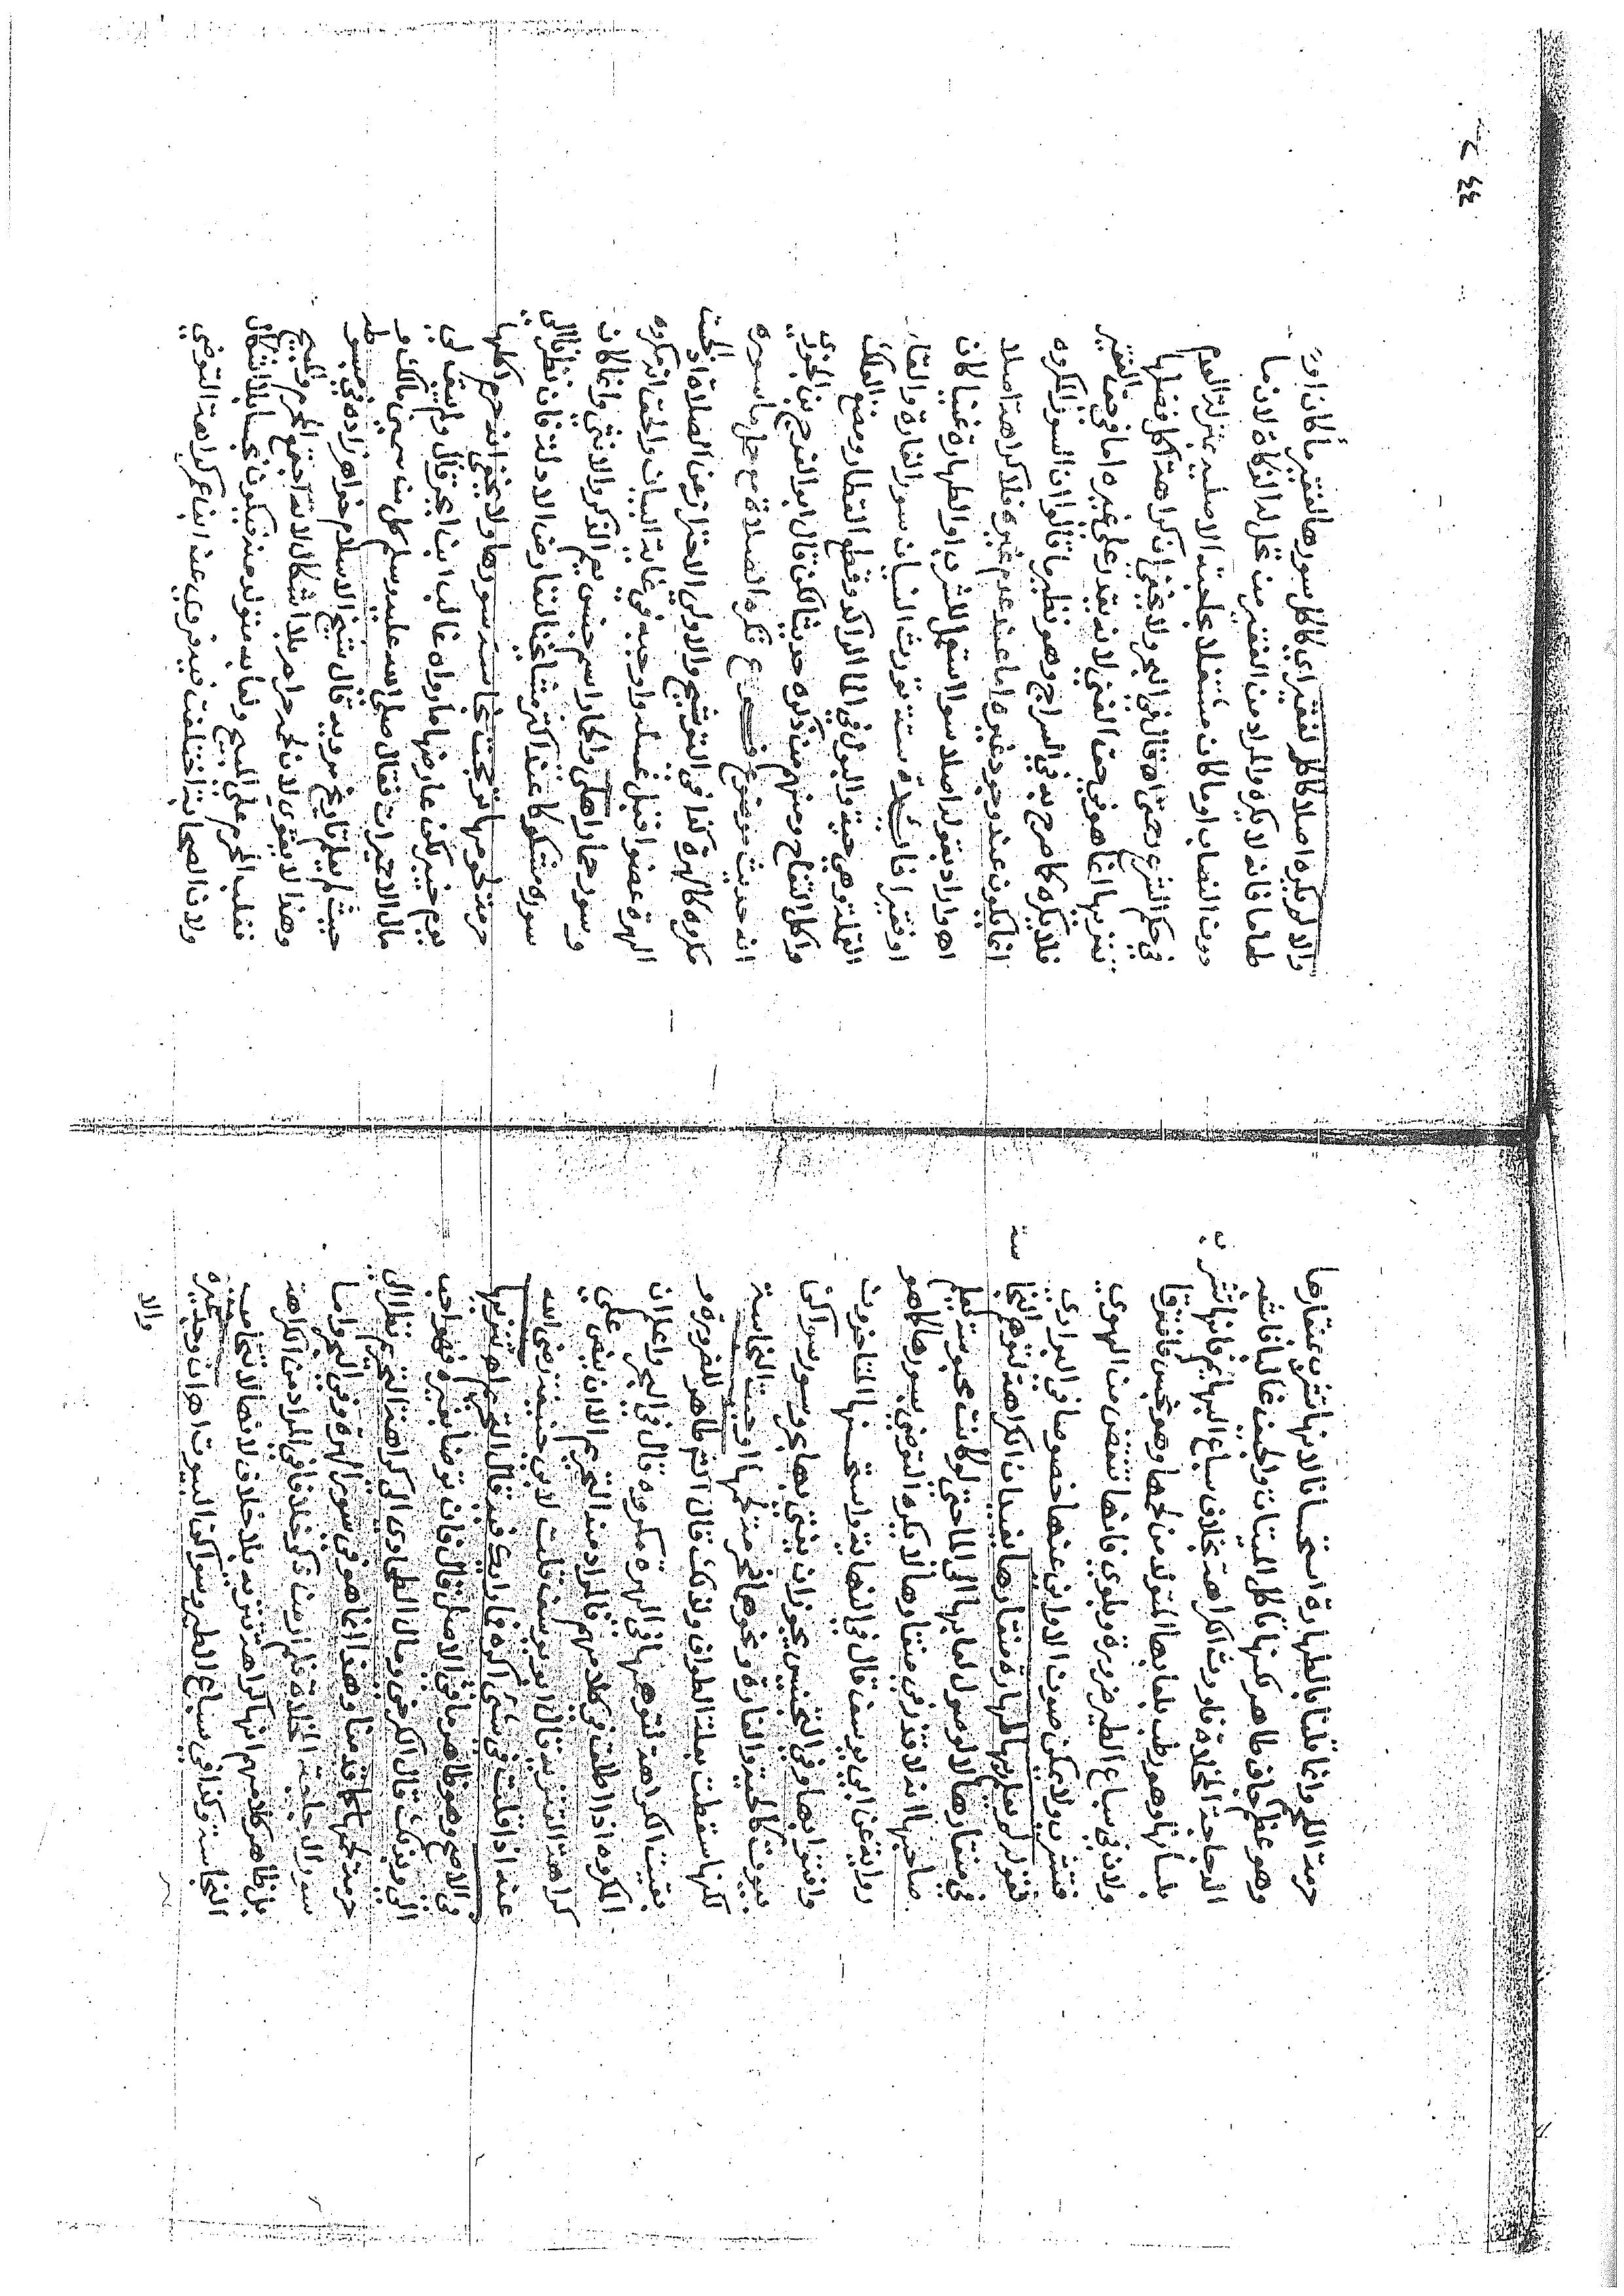 حرمة اللحم وانما قلنا بالطهارة استحسانا لانها تشرب بمنقارها
وهو عظم جاف طاهر لكنها تاكل الميتات والجيف غالبا فاشبه
الدجاجة المخلاة فاورث الكراهة بخلاف سباع البهايم فانها تشرب
بلسانها وهو رطب بلعابها المتولد من لحمها وهو نجس فافترقا
ولان في سباع الطير ضرورة وبلوي فانها تنقض من الهوي
فتشرب ولا يمكن صون الاواني عنها خصوصا في البراري
فقوله لو بها طهارة منقارها يفيد ان الكراهة لتوهم النجاسة
في منقارها لا لوصول لعابها الى الما حتي لو كانت محبوسة يعلم
صاحبها انه لا قذر في منقارها لا يكره التوضي بسورها كما هو
رواية عن ابي يوسف قال في النهاية واستحسنها المتاخرون
وافتوا بها وفي التجنيس يجوز ان يفتي بها بحر وسور سواكن
بيوت كالحية والفارة ونحوها فحرمة لحمها اوجبت النجاسة
لكنها سقطت بعلة الطواف ولذلك قال طاهر للضرورة
بقيت الكراهة لتوهمها في الهرة مكروه قال في البحر واعلم ان
المكروه اذا اطلق في كلامهم فالمراد منه التحريم الا ان ينص على
كراهة التنزيه قال ابو يوسف قلت لابي حنيفة رضي الله
عنه اذا قلت في شي اكره فما رايك فيه قال التحريم اه تنزيها
في الاصح وهو ظاهر ما في الاصل قال فان توضا بغيره فهو احب
الي من ذلك قال الكرخي ومال الطحاوي الى كراهة التحريم نظرا الى
حرمة لحمها كما قدمنا وهذا انما هو في سور الهرة وفي البحر واما
سور الدجاجة المخلاة فلم ار من ذكر خلافا في المراد من الكراهة
بل ظاهر كلامهم انها كراهة تنزيه بلا خلاف لانها لا تتحامى
النجاسة وكذا في سباع الطير وسواكن البيوت اه ان وجد غيره
والا
والا لم يكره اصلا كاكله لفقير اي كاكل سورها لفقير ما كان
طعاما فانه لا يكره والمراد من الفقير من تحل له الزكاة لان ما
دون النصاب او ما كان مشتغلا بحاجته الاصلية بمنزلة العدم
في حكم الشرع رحمتي اه قال في البحر ولا يخفى ان كراهة اكل فضلها
تنزيها انما هو في حق الغني لانه يقدر على غيره اما في حق الفقير
فلا يكره كما صرح به في السراج وهو نظير ما قالوا ان السور المكروه
انما يكون عند وجود غيره اما عند عدم غيره فلا كراهة اصلا
اه واراد بقوله اصلا سوا استعمل للشرب او الطهارة غنيا كان
او فقيرا فائدة ستة تورث النسيان سور الفارة والقاء
القملة وهي حية والبول في الما الراكد وقطع القطار ومضغ العلك
واكل التفاح ومنهم من ذكره حديثا لكن قال ابو الفرج بن الجوزي
انه حديث موضوع فروع تكره الصلاة مع حمل ما سوره
مكروه كالهرة كذا في التوشيح والاولى الاحتراز عن الصلاة اذ لحست
الهرة عضوا قبل غسله واوجبه في غاية البيان والحق انه مكروه
وسور حمار اهلي والحمار اسم جنس يعم الذكر والانثى وانما كان
سوره مشكوكا عند اكثر مشايخنا لتعارض الادلة فان نظر الى
حرمة لحومها اوجبت نجاسة سورها ولا يخفى انه حرم اكلها
يوم خيبر لكن عارضها ما رواه غالب ابن ابجر قال ولم يبق لي
مال الا حميرات فقال صلى الله عليه وسلم كل من سمين مالك
حيث لم يعلم تاريخ مرويه قال شيخ الاسلام خواهر زاده في مبسوطه
وهذا لا يقوى لان لحمه حرام بلا اشكال لانه اجتمع المحرم والمبيح
فغلب المحرم على المبيح ولعابه متولد منه فيكون نجسا بلا اشكال
ولان الصحابة اختلفت فيه فروي عن ابن عمر كراهة التوضي